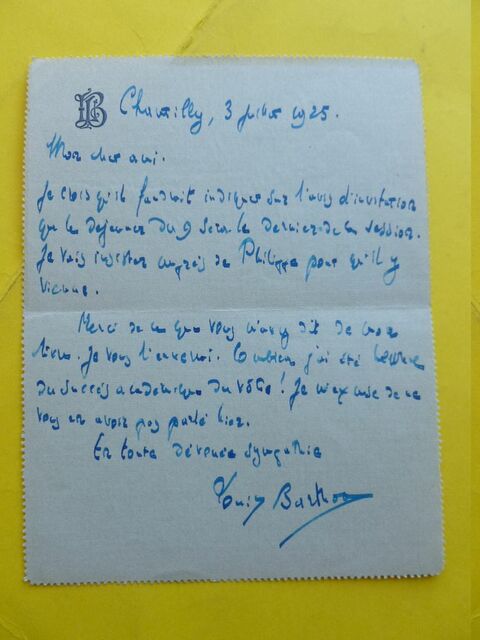 LB
Chantilly, 3 juillet 1925.
Mon cher ami.
Je crois qu'il faudrait indiquer sur l'avis d'invitation
que le déjeuner du 9 sera le dernier de la session.
Je vais insister auprès de Philippe pour qu'il y
vienne.
Merci de ce que vous m'avez dit de mon
livre. Je vous l'enverrai. Combien j'ai été heureux
du succès académique du vôtre ! Je m'excuse de ne
vous en avoir pas parlé hier.
En toute dévouée sympathie
Louis Barthou